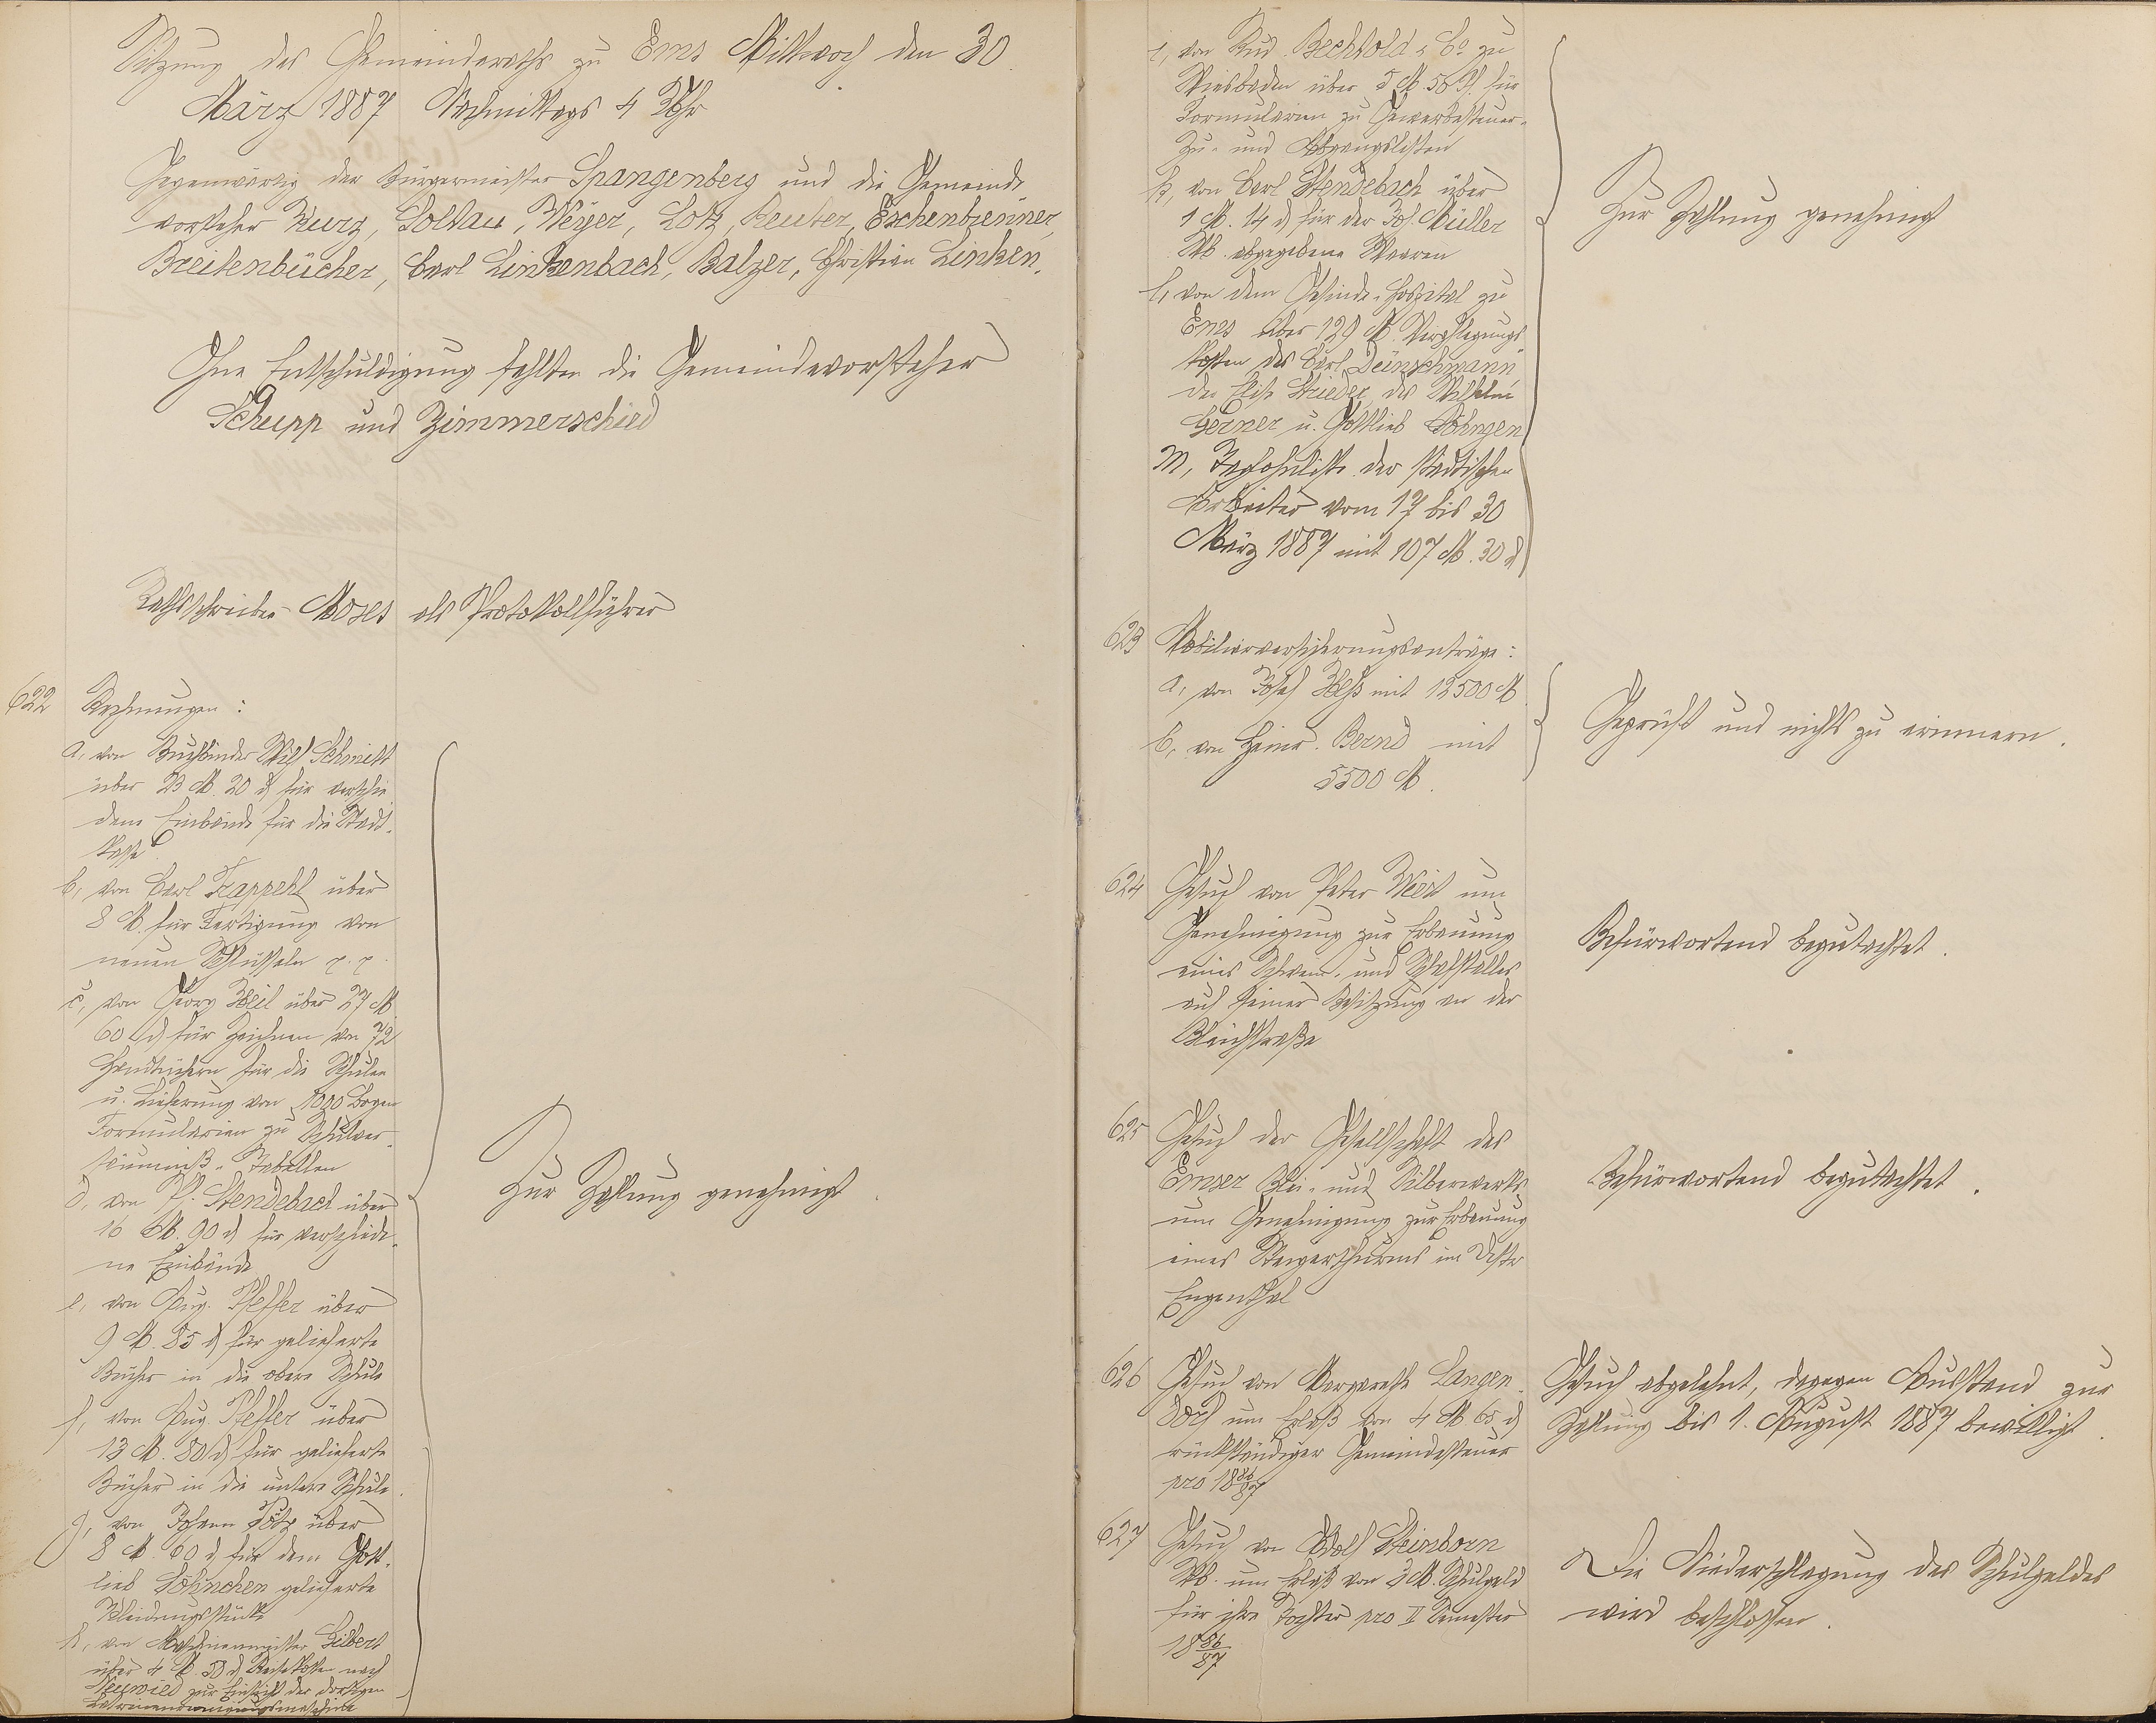 Sitzung des Gemeinderaths zu Ems Mittwoch den 30
März 1887 Nachmittags 4 Uhr
Gegenwärtig der Bürgermeister Spangenberg und die Gemeinde
vorsteher Kurz, Soldau, Weyer, Lotz, Reuter, Eschenbrenner,
Breitenbücher, Carl Linkenbach, Balzer, Christian Linken.
Ohne Entschuldigung fehlten die Gemeindevorsteher
Schupp und Zimmerschied
Rathsschreiber Moses als Protokollführer
622 Rechnungen:
a, von Buchbinder Wilh Schmitt
über 23 M. 20 d für verschie
dene Einbände für die Stadt-
kasse
b, von Carl Trappehl über
8 M. für Fertigung von
neuen Schlüsseln p. p.
c, von Georg Heil über 27 M
60 d für Zeichnen von 72
Handtüchern für die Schulen
u. Lieferung von 1000 Bogen
Formularien zu Schulver-
säumniß-Tabellen
d, von Ph. Stendebach über
16 M. 90 d für verschiede-
ne Einbände
e, von Aug. Pfeffer über
9 M. 85 d für gelieferte
Bücher in die obere Schule
f, von Aug. Pfeffer über
13 M. 80 d für gelieferte
Bücher in die untere Schule.
g, von Johann Pötz über
8 M. 60 d für dem Gott-
lieb Söhnchen gelieferte
Kleidungsstücke
h, von Maschinenmeister Gilbert
über 4 M. 50 d Reisekosten nach
Neuwied zur Einsicht der dortigen
Latrinenreinigungsmaschine
Zur Zahlung genehmigt.
i, von Rud. Bechtold & Co. zu
Wiesbaden über 5 M. 50 Pf. für
Formularien zu Gewerbesteuer-
Zu- und Abgangslisten
k, von Carl Stendebach über
1 M. 14 d für der Jos. Müller
Wb. abgegebene Waaren
l, von dem Gesinde-Hospital zu
Ems über 129 M. Verpflegungs
kosten des Carl Deinschmann
der Elise Strieder, des Wilhelm
Gerner u. Gottlieb Söhngen
m, Taglohnliste der städtischen
Arbeiter vom 17 bis 30
März 1887 mit 107 M. 30 d
Zur Zahlung genehmigt
623 Mobiliarversicherungsanträge:
a, von Josef Heß mit 12500 M
b, von Heinr. Bernd mit
5500 M.
Geprüft und nichts zu erinnern.
624 Gesuch von Peter Weis um
Genehmigung zur Erbauung
eines Schwein- und Schafstalles
auf seiner Besitzung an der
Bleichstraße
Befürwortend begutachtet.
625 Gesuch der Gesellschaft des
Emser Blei- und Silberwerks
um Genehmigung zur Erbauung
eines Steigerthurms im Distr
Engenthal
Befürwortend begutachtet.
626 Gesuch von Margarethe Langen-
dorf um Erlaß von 4 M. 65 d
rückständiger Gemeindesteuer
pro 1886/87
Gesuch abgelehnt, dagegen Ausstand zur
Zahlung bis 1. August 1887 bewilligt.
627 Gesuch von Adolf Steinborn
Wb. um Erlaß von 3 M. Schulgeld
für ihre Tochter pro II Semester
1886/87
Die Niederschlagung des Schulgeldes
wird beschlossen.